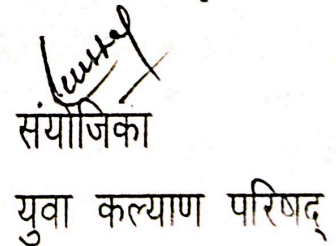 संयोजिका
युवा कल्याण परिषद्